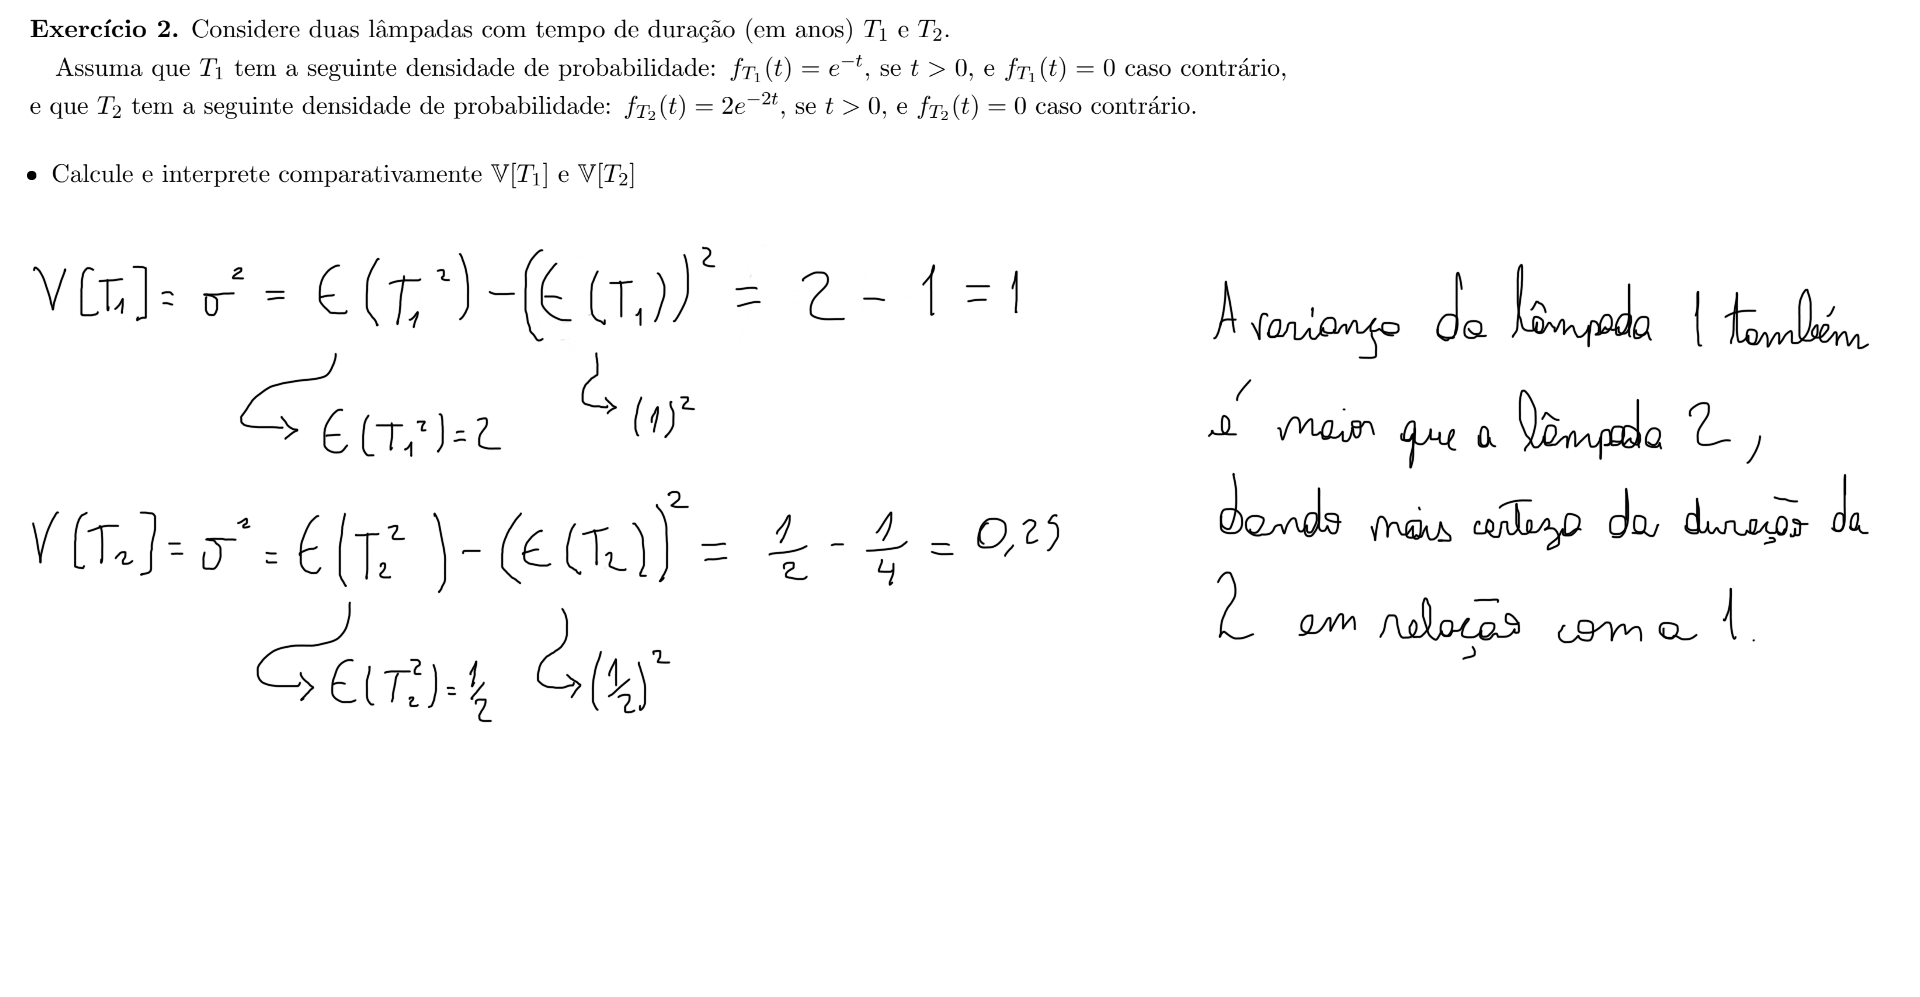 Exercício 2. Considere duas lâmpadas com tempo de duração (em anos) T₁ e T₂.
Assuma que T₁ tem a seguinte densidade de probabilidade: f_{T₁}(t) = e^{−t}, se t > 0, e f_{T₁}(t) = 0 caso contrário,
e que T₂ tem a seguinte densidade de probabilidade: f_{T₂}(t) = 2e^{−2t}, se t > 0, e f_{T₂}(t) = 0 caso contrário.
• Calcule e interprete comparativamente 𝕍[T₁] e 𝕍[T₂]
V[T₁] = σ² = E(T₁²) − (E(T₁))² = 2 − 1 = 1
E(T₁²) = 2
(1)²
V[T₂] = σ² = E(T₂²) − (E(T₂))² = 1/2 − 1/4 = 0,25
E(T₂²) = 1/2
(1/2)²
A variança da lâmpada 1 também
é maior que a lâmpada 2,
dando mais certeza da duração da
2 em relação com a 1.